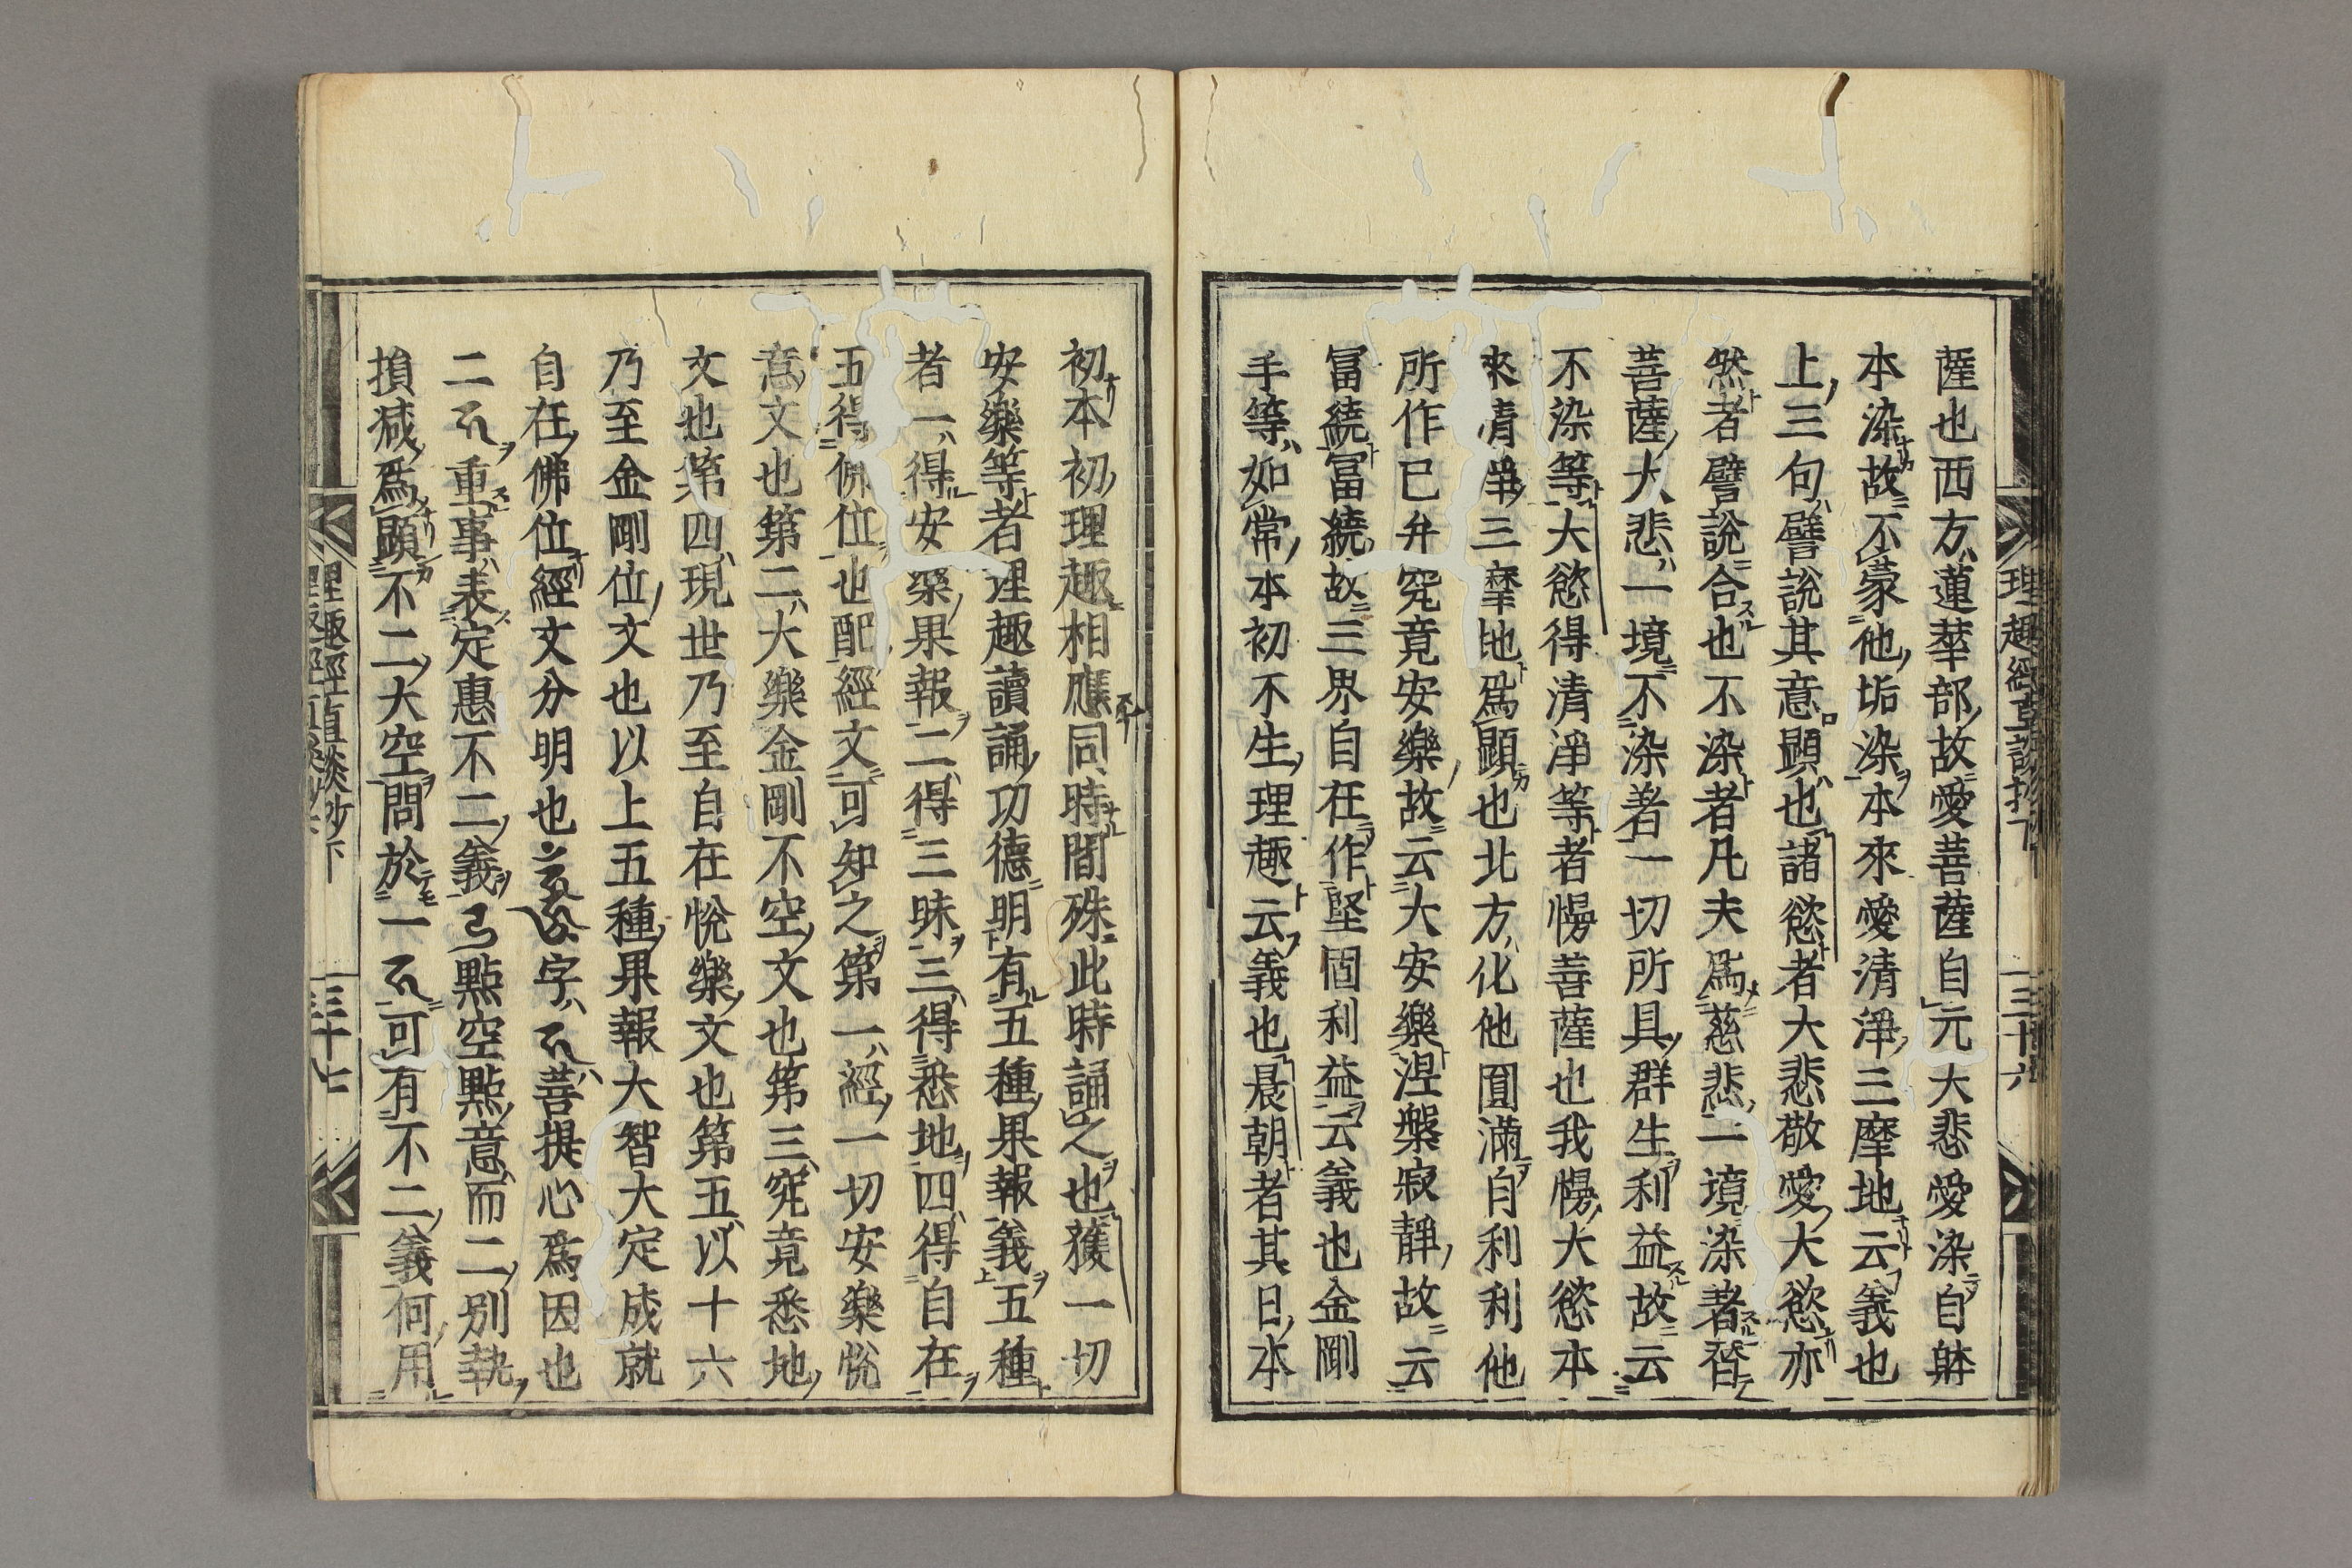 薩也西方蓮華部故愛菩薩自元大悲愛染自躰
本染故不蒙他垢染本來愛清淨三摩地云義也
上三句譬說其意顯也諸慾者大悲敬愛大慾亦
然者譬說合也不染者凡夫爲慈悲一境染著替
菩薩大悲一境不染着一切所具群生利益故云
不染等大慾得清淨等者慢菩薩也我慢大慾本
來清淨三摩地爲顯也北方化他圓滿自利利他
所作已弁究竟安樂故云大安樂涅槃寂靜故云
冨繞冨繞故三界自在作堅固利益云義也金剛
手等如常本初不生理趣云義也晨朝者其日本
理趣經直談抄下
三十六
初本初理趣相應同時間殊此時誦之也獲一切
安樂等者理趣讀誦功德明有五種果報義五種
者一得安樂果報二得三昧三得悉地四得自在
五得佛位也配經文可知之第一經一切安樂悅
意文也第二大樂金剛不空文也第三究竟悉地
文也第四現世乃至自在悅樂文也第五以十六
乃至金剛位文也以上五種果報大智大定成就
自在佛位經文分明也字菩提心爲因也
二重事表定惠不二義點空點意而二別執
損减爲顯不二大空問於一可有不二義何用
理趣經直談抄下
三十七